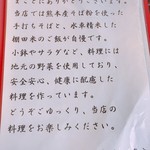 まことにありがとうございます。
当店では熊本産そば粉を使った
手打ちそばと、水車精米した
棚田米のご飯が自慢です。
小鉢やサラダなど、料理には
地元の野菜を使用しており、
安全安心、健康に配慮した
料理を作っています。
どうぞごゆっくり、当店の
料理をお楽しみください。